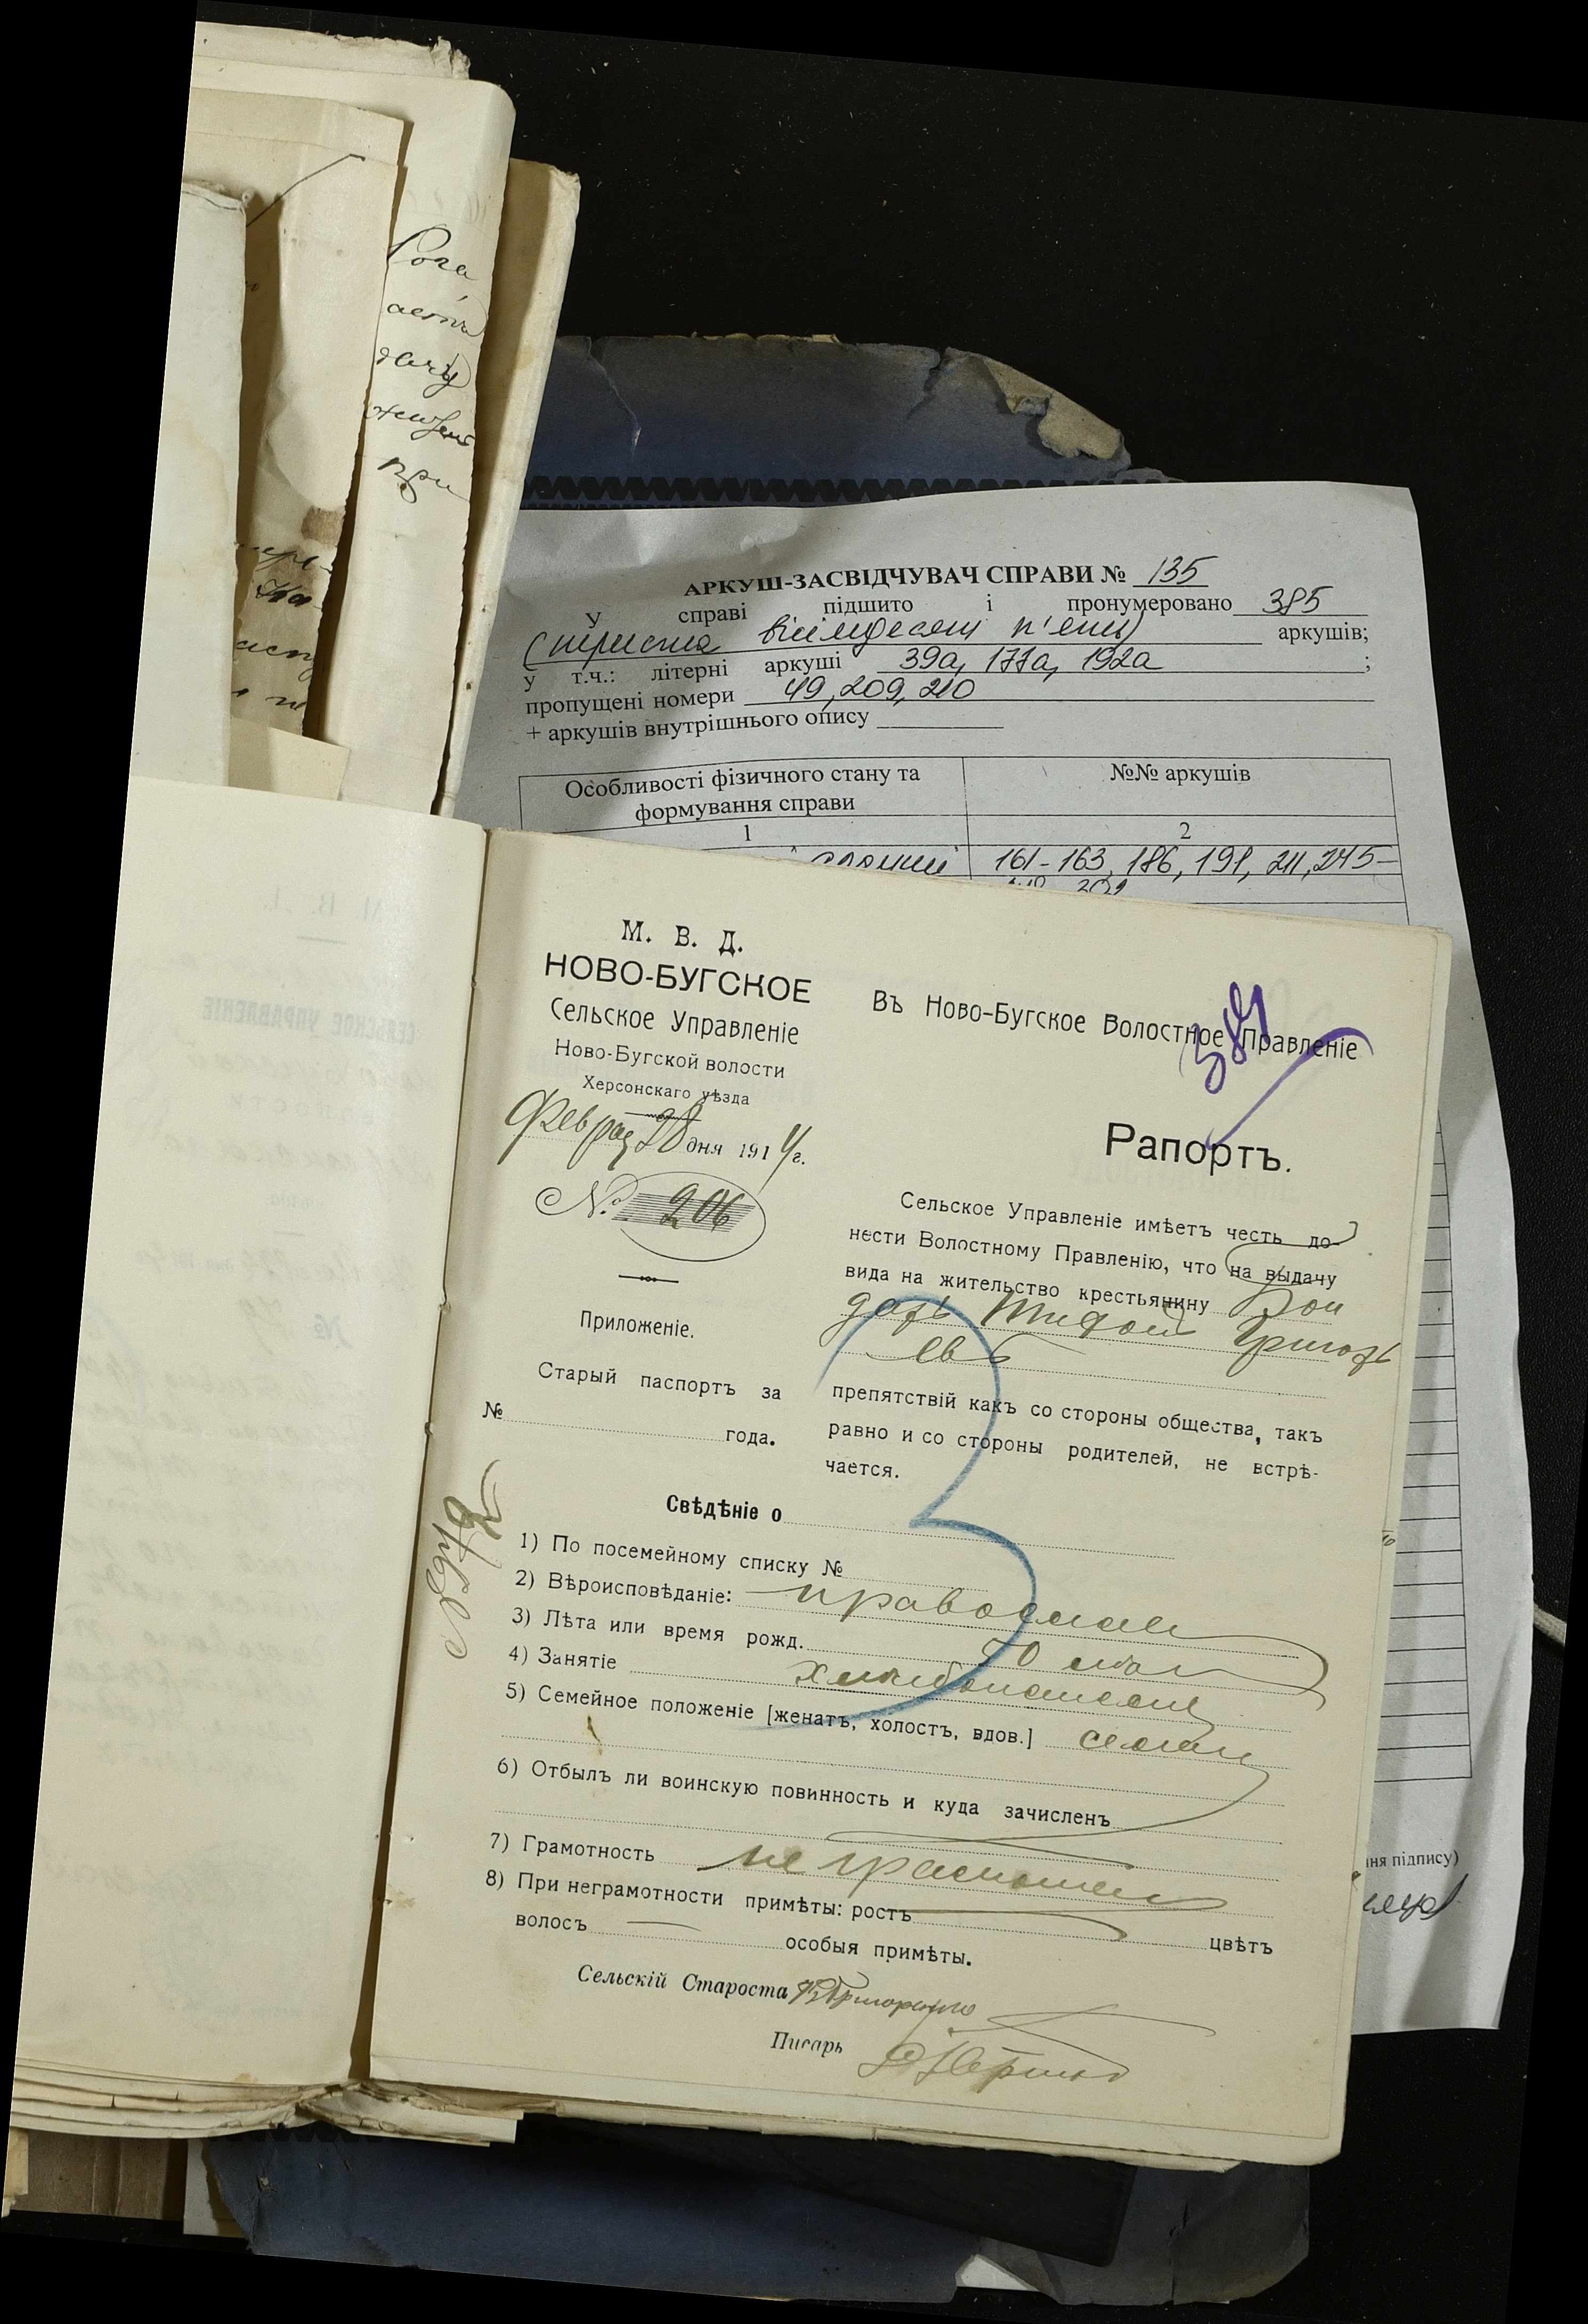 Рога
дачу
при
АРКУШ-ЗАСВІДЧУВАЧ СПРАВИ № 135
У справі підшито і пронумеровано 385
(триста вісімдесят п'ять) аркушів;
у т.ч.: літерні аркуші 39а, 177а, 192а ;
пропущені номери 49, 209, 210
+ аркушів внутрішнього опису
Особливості фізичного стану та формування справи
№№ аркушів
1
2
161-163, 186, 191, 211, 245-
М. В. Д.
НОВО-БУГСКОЕ
Сельское Управленіе
Ново-Бугской волости
Херсонскаго уѣзда
Февраля 28 дня 1914 г.
№ 206
Приложеніе.
Старый паспортъ за
№ года.
Въ Ново-Бугское Волостное Правленіе
Рапортъ.
Сельское Управленіе имѣетъ честь до-
нести Волостному Правленію, что на выдачу
вида на жительство крестьянину Бон
дарь Григорь
евъ
препятствій какъ со стороны общества, такъ
равно и со стороны родителей, не встрѣ-
чается.
Свѣдѣніе о
1) По посемейному списку №
2) Вѣроисповѣданіе: православн
3) Лѣта или время рожд. 50 лѣт
4) Занятіе хлѣбопашец
5) Семейное положеніе [женатъ, холостъ, вдов.]
6) Отбылъ ли воинскую повинность и куда зачисленъ
7) Грамотность не грамотен
8) При неграмотности примѣты: ростъ цвѣтъ
волосъ — особыя примѣты.
Сельскій Староста
Писарь
ня підпису)